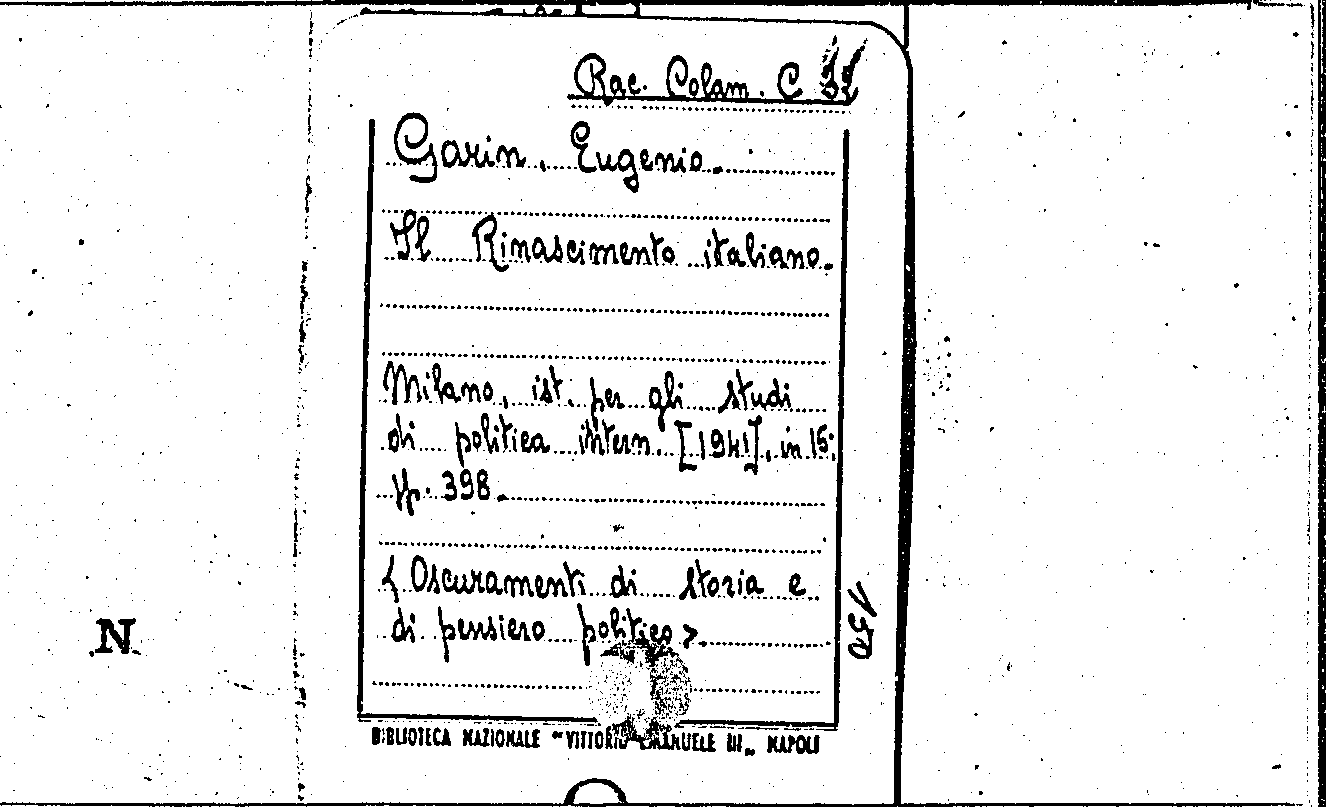 Rac. Colam. C
Garin, Eugenio.
Il Rinascimento italiano.
Milano, ist. per gli studi
di politica intern. [1941], in 16;
pp. 398.
< Oscuramenti di storia e
di pensiero politico >.
150
N
BIBLIOTECA NAZIONALE "VITTORIO EMANUELE III„ NAPOLI